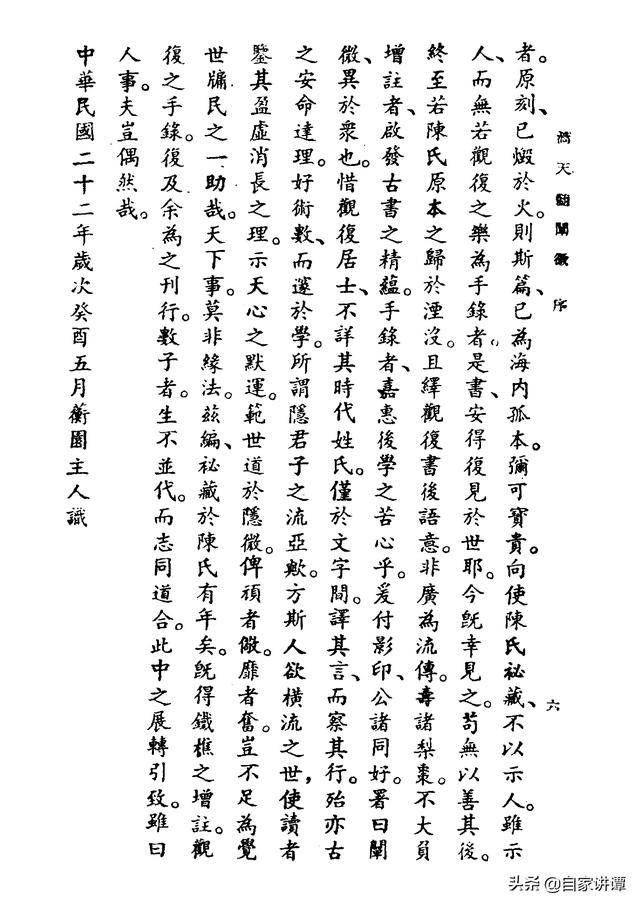 滴天髓闡微 序
六
者。原刻、已燬於火。則斯篇、已為海內孤本。彌可寶貴。向使陳氏祕藏、不以示人。雖示
人、而無若觀復之樂為手錄者。是書、安得復見於世耶。今既幸見之。苟無以善其後。
終至若陳氏原本之歸於湮沒。且繹觀復書後語意。非廣為流傳。壽諸梨棗。不大負
增註者、啟發古書之精蘊。手錄者、嘉惠後學之苦心乎。爰付影印、公諸同好。署曰闡
微、異於衆也。惜觀復居士、不詳其時代姓氏。僅於文字間。譯其言、而察其行。殆亦古
之安命達理。好術數、而邃於學。所謂隱君子之流亞歟。方斯人欲橫流之世，使讀者
鑒其盈虛消長之理。示天心之默運。範世道於隱微。俾頑者儆。靡者奮。豈不足為覺
世牖民之一助哉。天下事。莫非緣法。茲編、祕藏於陳氏有年矣。既得鐵樵之增註。觀
復之手錄。復及余為之刊行。數子者。生不並代。而志同道合。此中之展轉引致。雖曰
人事。夫豈偶然哉。
中華民國二十二年歲次癸酉五月蘅園主人識
头条 @自家讲谭